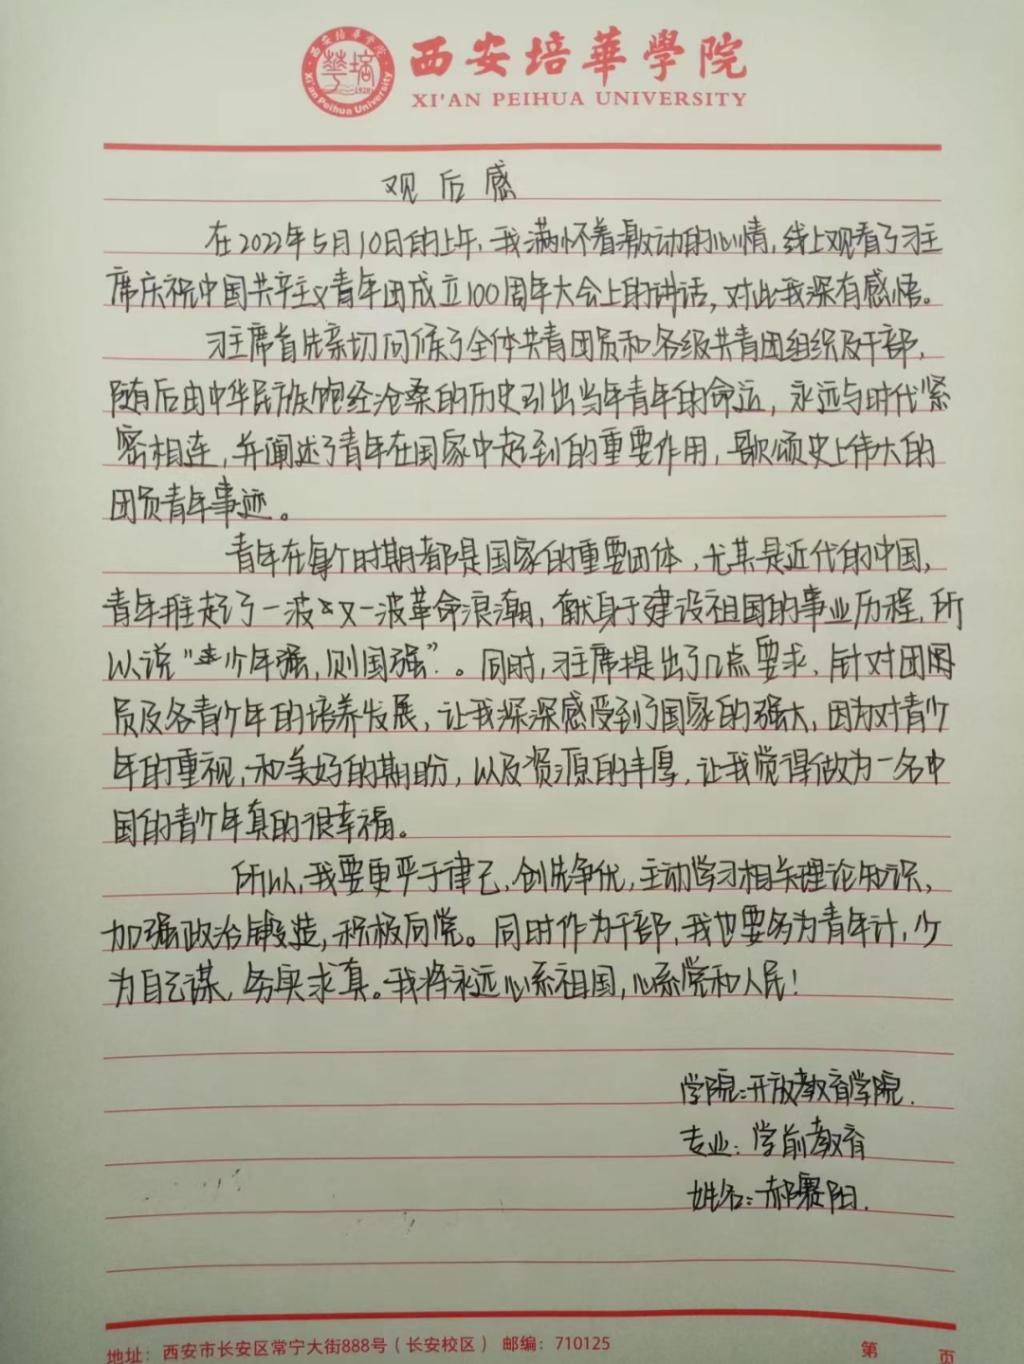 西安培華學院
XI'AN PEIHUA UNIVERSITY
观后感
在2022年5月10日的上午,我满怀着激动的心情,线上观看了习主
席庆祝中国共产主义青年团成立100周年大会上的讲话,对此我深有感悟。
习主席首先亲切问候了全体共青团员和各级共青团组织及干部,
随后由中华民族饱经沧桑的历史引出当年青年的命运,永远与时代紧
密相连,并阐述了青年在国家中起到的重要作用,歌颂史上伟大的
团员青年事迹。
青年在每个时期都是国家的重要团体,尤其是近代的中国,
青年推起了一波又一波革命浪潮,献身于建设祖国的事业历程,所
以说“少年强,则国强”。同时,习主席提出了几点要求,针对团
员及各青少年的培养发展,让我深深感受到了国家的强大,因为对青少
年的重视,和美好的期盼,以及资源的丰厚,让我觉得做为一名中
国的青少年真的很幸福。
所以,我要更严于律己,创先争优,主动学习相关理论知识,
加强政治锻造,积极向党。同时作为干部,我也要务为青年计,少
为自己谋,务实求真。我将永远心系祖国,心系党和人民!
学院:开放教育学院.
专业:学前教育
姓名:郝赛阳.
地址:西安市长安区常宁大街888号(长安校区) 邮编:710125
第 页